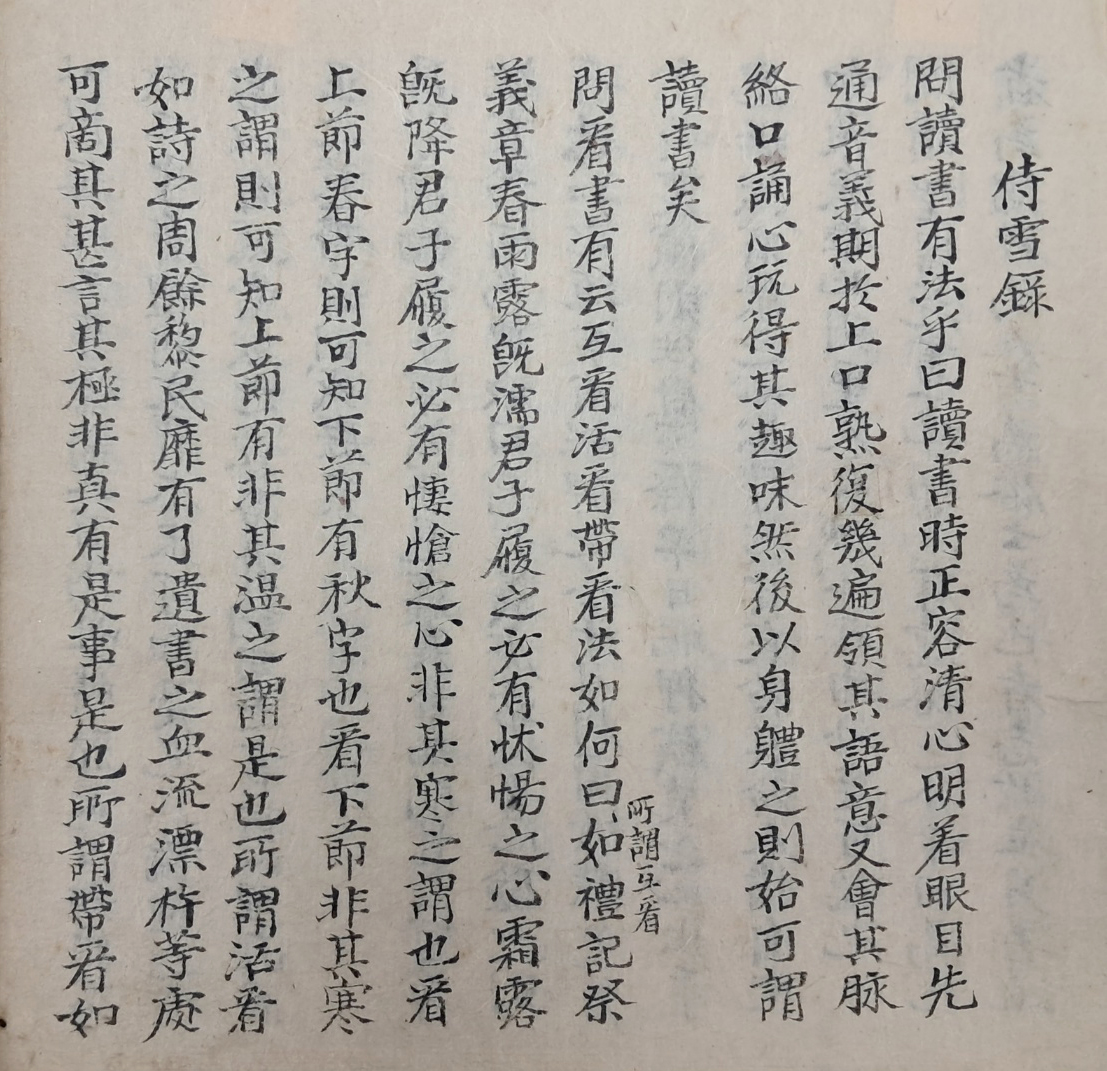 侍雪錄
問讀書有法乎曰讀書時正容清心明着眼目先
通音義期於上口熟復幾遍領其語意又會其脉
絡口誦心玩得其趣味然後以身軆之則始可謂
讀書矣
所謂互看
問看書有云互看活看帶看法如何曰如禮記祭
義章春雨露旣濡君子履之必有怵惕之心霜露
旣降君子履之必有悽愴之心非其寒之謂也看
上節春字則可知下節有秋字也看下節非其寒
之謂則可知上節有非其温之謂是也所謂活看
如詩之周餘黎民靡有了遺書之血流漂杵等處
可啇其甚言其極非真有是事是也所謂帶看如